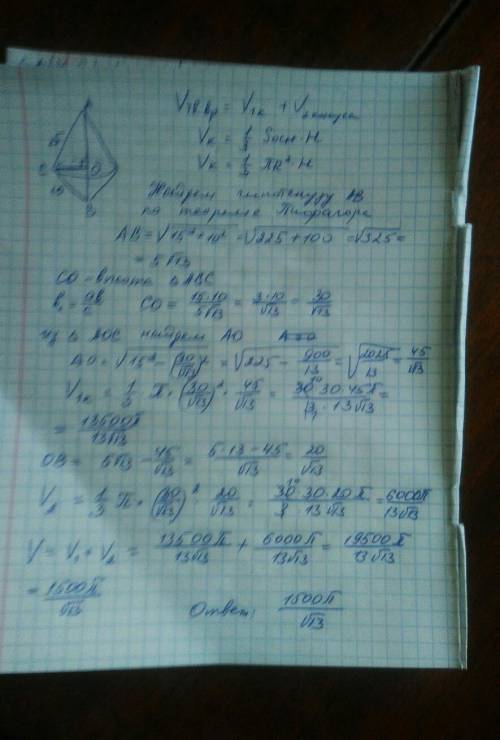 A
15
C
O
10
B
Vтв.вр = V1к + V2конуса
Vк = 1/3 Sосн·H
Vк = 1/3 πR²·H
Найдем гипотенузу AB
по теореме Пифагора
AB = √15²+10² = √225+100 = √325 =
= 5√13
CO - высота ΔABC
CO = 15·10/5√13 = 3·10/√13 = 30/√13
из Δ AOC найдем AO
AO = √15² - (30/√13)² = √225 - 900/13 = √2025/13 = 45/√13
V1к = 1/3 π · (30/√13)² · 45/√13 = 30·30·45π/3·13√13 =
= 13500π/13√13
OB = 5√13 - 45/√13 = 5·13-45/√13 = 20/√13
V2 = 1/3 π · (30/√13)² · 20/√13 = 30·30·20π/3·13√13 = 6000π/13√13
V = V1 + V2 = 13500π/13√13 + 6000π/13√13 = 19500π/13√13
= 1500π/√13
Ответ: 1500π/√13